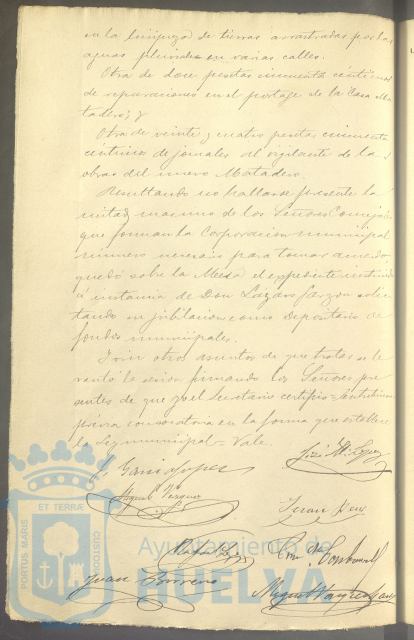 en la limpieza de tierras arrastradas por las
aguas pluviales en varias calles.
Otra de doce pesetas cincuenta centimos
de reparaciones en el portage de la Casa Ma
tadero; y
Otra de veinte y cuatro pesetas cincuenta
centimos de jornales al vigilante de las
obras del nuevo Matadero.
Resultando no hallarse presente la
mitad mas uno de los Señores Concejales
que forman la Corporacion municipal
numero necesario para tomar acuerdo,
quedó sobre la Mesa el expediente instruido
á instancia de Don Lázaro Garzon solici
tando su jubilacion como depositario de
fondos municipales.
Y sin otros asuntos de que tratar se le
vantó la sesion firmando los Señores pre
sentes de que yo el Secretario certifico =
previa convocatoria en la forma que establece
la Ley municipal = Vale.
Garcia Lopez
José M. Lopez
Miguel Vazquez
Juan
Juan Borrero
Miguel Vazquez
ET TERRÆ
PORTUS MARIS
CUSTODIA
Ayuntamiento de
HUELVA